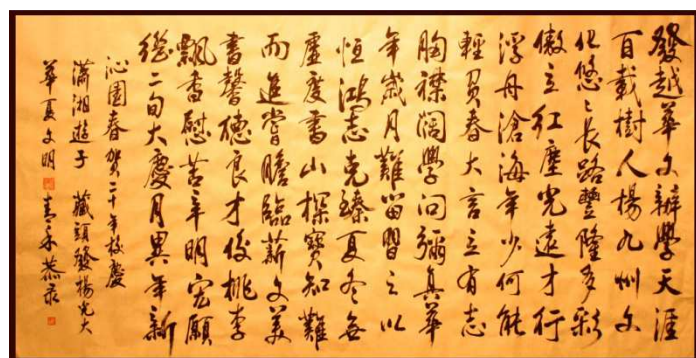 發越華文辦學天涯
百載樹人楊九州文
化悠々長路豐隆多彩
傲立紅塵光遠才行
浮舟滄海年少何能
輕負春大言立有志
胸襟闊學問彌真華
年歲月難留習之以
恒鴻志克臻夏冬無
虛度書山探寶知難
而進嘗膽臥薪文美
書馨德良才俊桃李
飄香慰苦辛明宏願
繼二旬大慶月異年新
沁園春賀二十年校慶
瀟湘遊子 藏頭發楊光大
華夏文明 青禾恭录